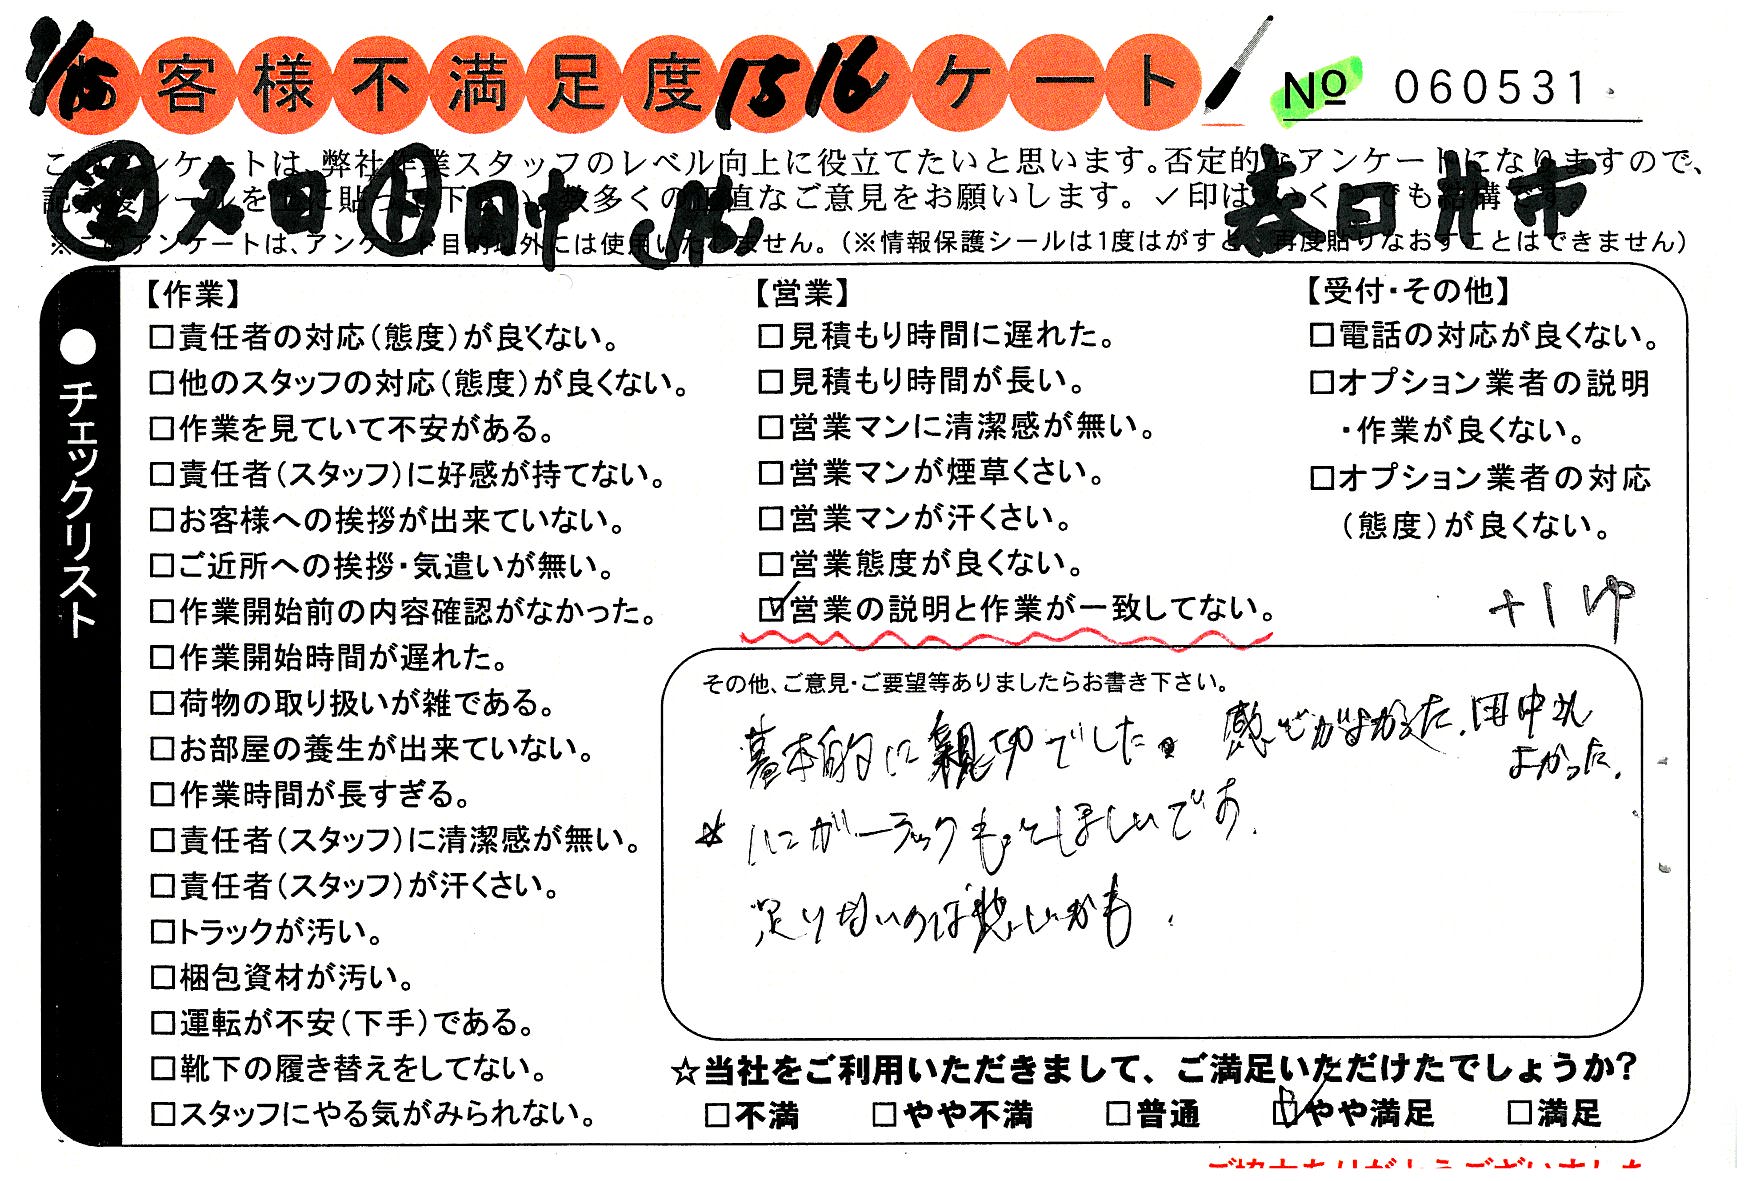 お客様不満足度アンケート
1/15
15 16
№ 060531
このアンケートは、弊社作業スタッフのレベル向上に役立てたいと思います。否定的なアンケートになりますので、
記入後シールを上に貼って下さい。数多くの正直なご意見をお願いします。✓印はいくつでも結構です。
営 久田 ト 田中 春日井市
※このアンケートは、アンケート目的以外には使用いたしません。（※情報保護シールは1度はがすと、再度貼りなおすことはできません）
●チェックリスト
【作業】
□責任者の対応（態度）が良くない。
□他のスタッフの対応（態度）が良くない。
□作業を見ていて不安がある。
□責任者（スタッフ）に好感が持てない。
□お客様への挨拶が出来ていない。
□ご近所への挨拶・気遣いが無い。
□作業開始前の内容確認がなかった。
□作業開始時間が遅れた。
□荷物の取り扱いが雑である。
□お部屋の養生が出来ていない。
□作業時間が長すぎる。
□責任者（スタッフ）に清潔感が無い。
□責任者（スタッフ）が汗くさい。
□トラックが汚い。
□梱包資材が汚い。
□運転が不安（下手）である。
□靴下の履き替えをしてない。
□スタッフにやる気がみられない。
【営業】
□見積もり時間に遅れた。
□見積もり時間が長い。
□営業マンに清潔感が無い。
□営業マンが煙草くさい。
□営業マンが汗くさい。
□営業態度が良くない。
☑営業の説明と作業が一致してない。
【受付・その他】
□電話の対応が良くない。
□オプション業者の説明
・作業が良くない。
□オプション業者の対応
（態度）が良くない。
その他、ご意見・ご要望等ありましたらお書き下さい。
基本的に親切でした。感じがよかった。田中さん
よかった。
☆ハンガーラックもってほしいです。
足りないのは悲しいかも。
☆当社をご利用いただきまして、ご満足いただけたでしょうか？
□不満 □やや不満 □普通 ☑やや満足 □満足
ご協力ありがとうございました